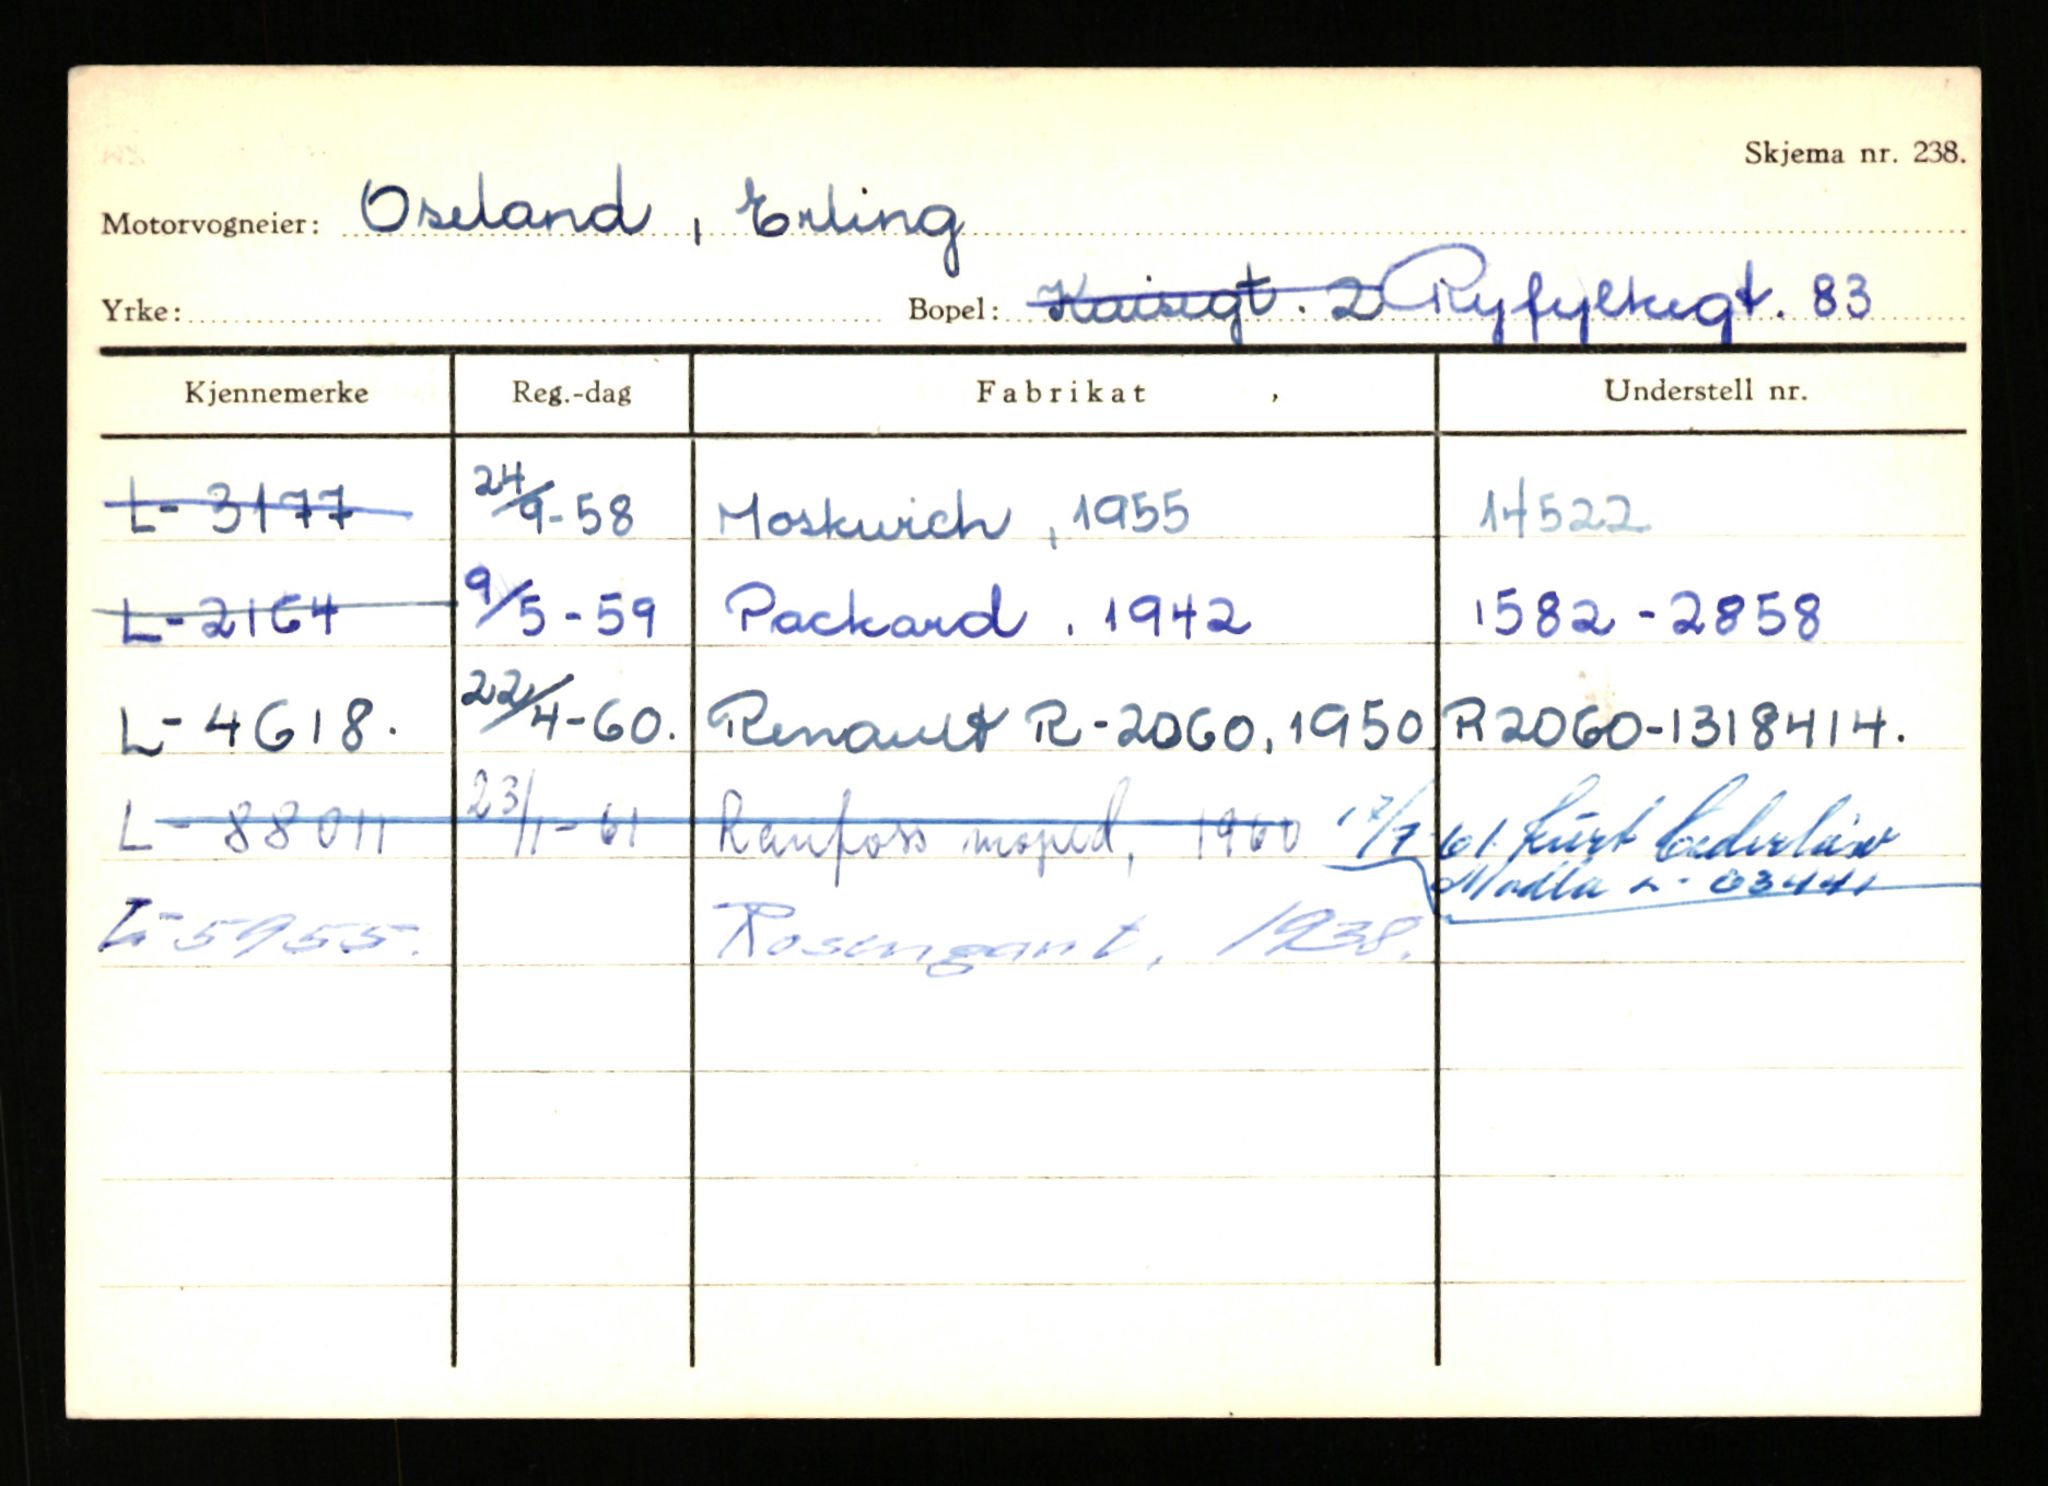 Skjema nr. 238.
Motorvogneier: Oseland, Erling
Yrke: Bopel: Kaisegt. 2 Ryfylkegt. 83
Kjennemerke Reg.-dag Fabrikat Understell nr.
L-3177 24/9-58 Moskwich, 1955 14522
L-2164 9/5-59 Packard, 1942 1582-2858
L-4618. 22/4-60. Renault R-2060, 1950 R2060-1318414.
L-88011 23/1-61 Raufoss moped, 1960 17/7-61. Kurt
Madla L-63441
L-5955. Rosengart, 1938.